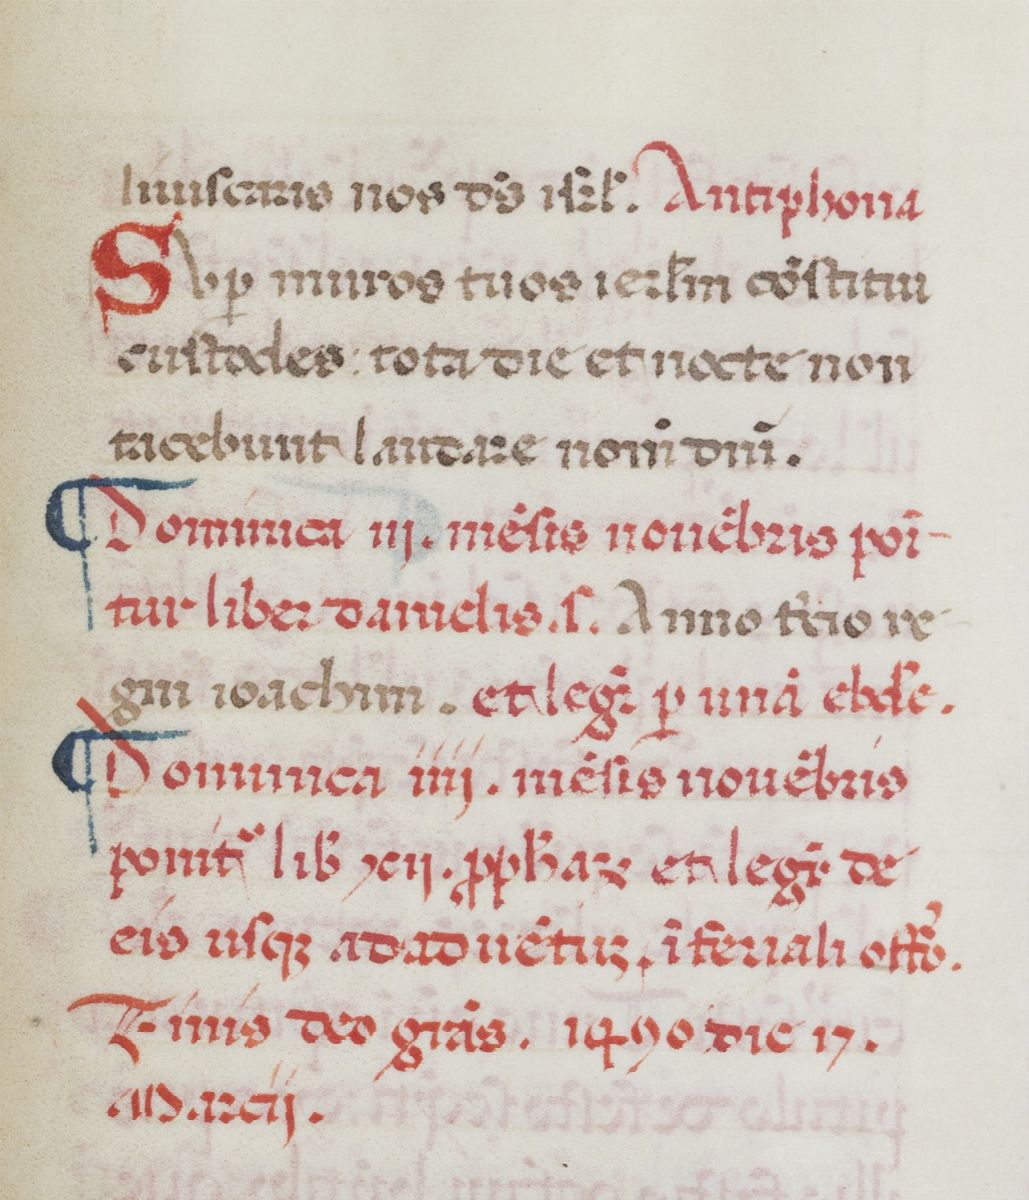 liviscaris nos ds̄ isrl̄. Antiphona
Sup̲ muros tuos ierlm̄ cōstitui
custodes: tota die et nocte non
tacebunt laudare nom̄ dn̄i.
¶ Dominica iij. mēsis novēbris poī-
tur liber danielis .s. Anno tr̄cio re-
gni ioachim. et legr̄ p̲ unā ebd̄e.
¶ Dominica iiij. mēsis novēbris
ponit᷒ lib̄ xii. ꝓph̄aꝝ et legr̄ de
eis usqꝫ ad advētuꝫ, ī feriali offō.
Finis deo grās. 1490 die 17.
Marcij.